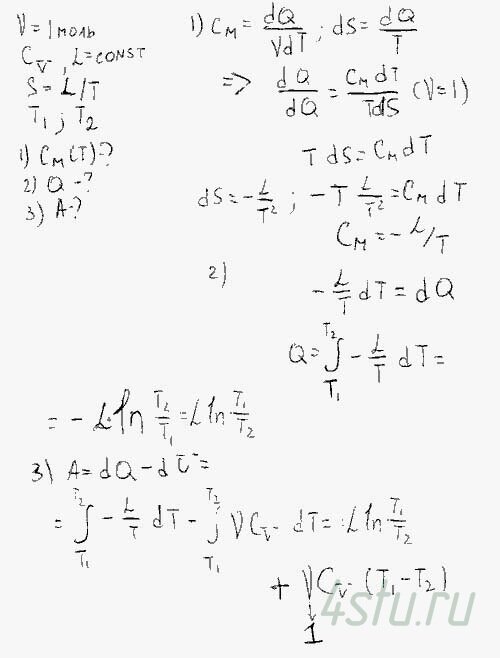 V = 1 моль
C_V, L = const
S = L/T
T₁ ; T₂
1) C_M (T) - ?
2) Q - ?
3) A - ?
1) C_M = dQ/VdT ; dS = dQ/T
=> dQ/dQ = C_M dT/TdS (V = 1)
T dS = C_M dT
dS = - L/T² ; - T L/T² = C_M dT
C_M = - L/T
2)
- L/T dT = dQ
Q = ∫_{T₁}^{T₂} - L/T dT =
= - L ln T₂/T₁ = L ln T₁/T₂
3) A = dQ - dU =
= ∫_{T₁}^{T₂} - L/T dT - ∫_{T₁}^{T₂} V C_V dT = L ln T₁/T₂
+ V C_V (T₁ - T₂)
1
4stu.ru